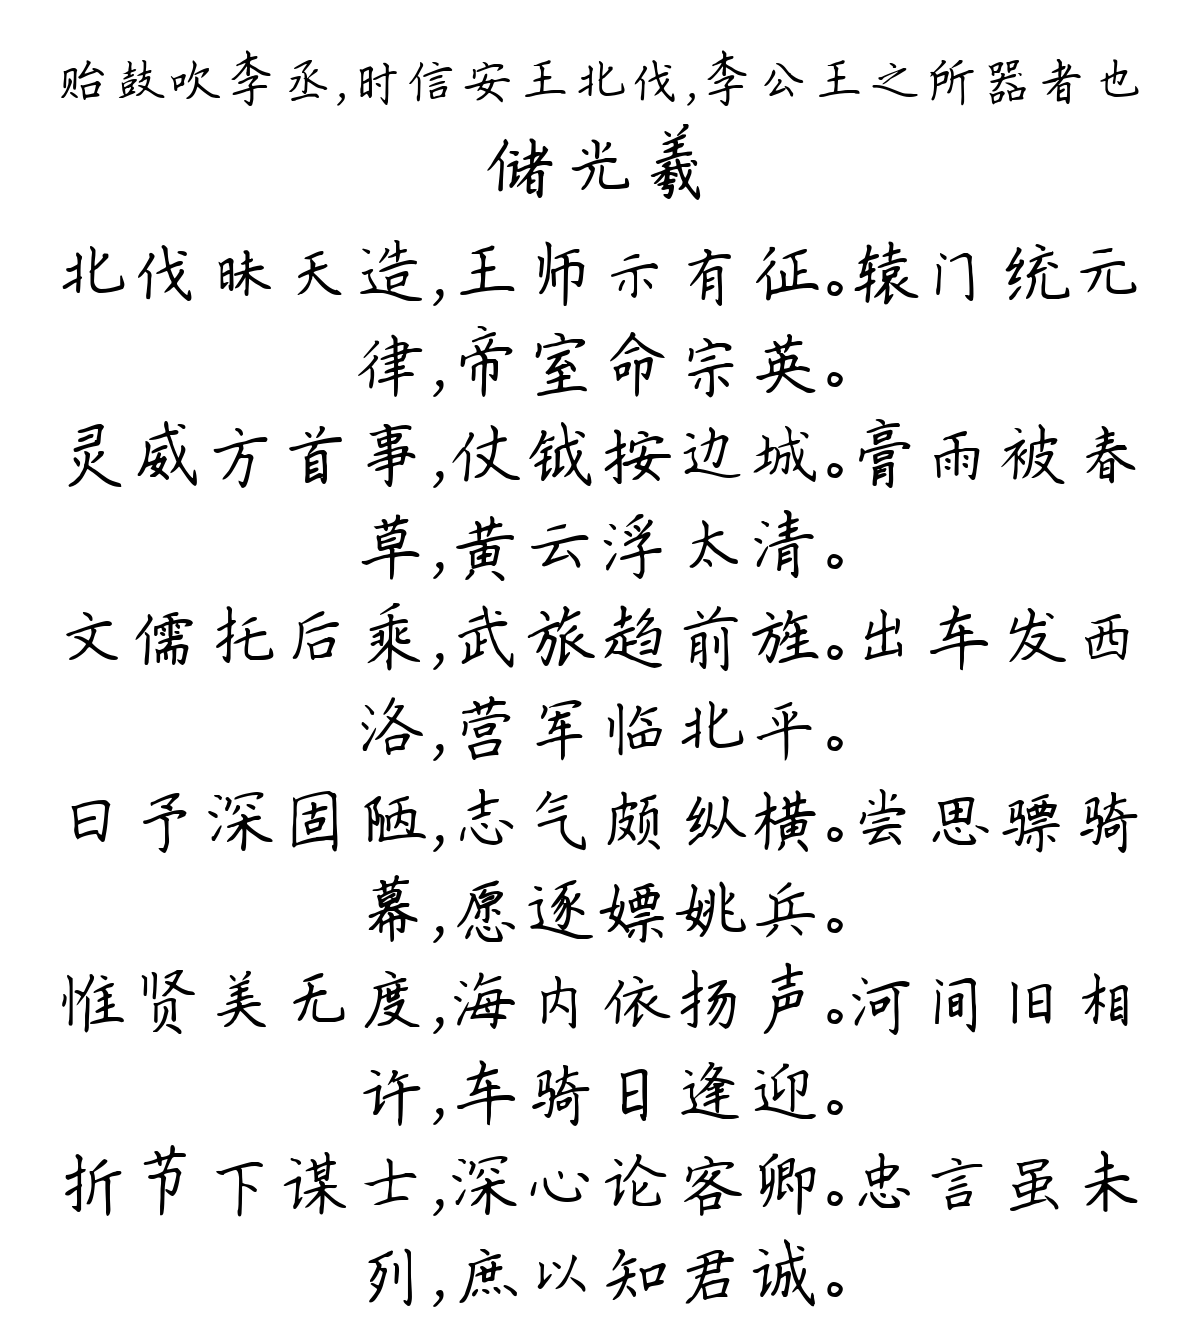 贻鼓吹李丞,时信安王北伐,李公王之所器者也
储光羲
北伐昧天造,王师示有征。辕门统元
律,帝室命宗英。
灵威方首事,仗钺按边城。膏雨被春
草,黄云浮太清。
文儒托后乘,武旅趋前旌。出车发西
洛,营军临北平。
曰予深固陋,志气颇纵横。尝思骠骑
幕,愿逐嫖姚兵。
惟贤美无度,海内依扬声。河间旧相
许,车骑日逢迎。
折节下谋士,深心论客卿。忠言虽未
列,庶以知君诚。